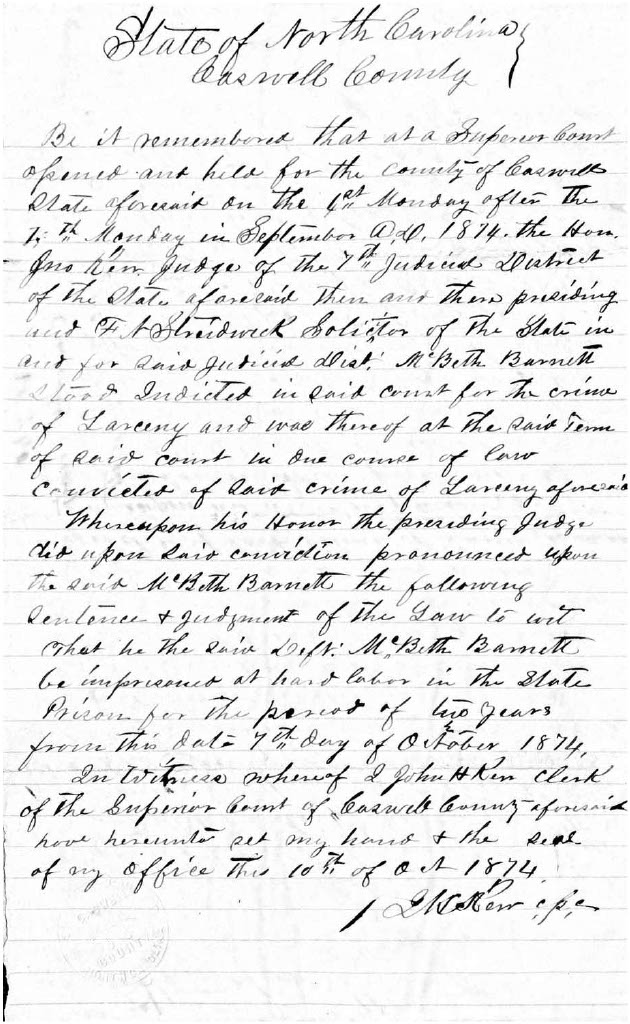 State of North Carolina }
Caswell County
Be it remembered that at a Superior Court
opened and held for the county of Caswell
State aforesaid on the 4st Monday after the
Monday in September A.D. 1874. the Hon.
Jno Kerr Judge of the 7th Judicial District
of the State aforesaid then and there presiding
and F N Streidwick Solicitor of the State in
and for said Judicial Dist. McBeth Barnett
stood Indicted in said court for the crime
of Larceny and was thereof at the said Term
of said court in due course of law
convicted of said crime of Larceny aforesaid
Whereupon his Honor the presiding Judge
did upon said conviction pronounced upon
the said McBeth Barnett the following
sentence & Judgment of the Law to wit
That he the said Deft. McBeth Barnett
be imprisoned at hard labor in the State
Prison for the period of two years
from this date 7th day of October 1874,
In Witness whereof I John H Kerr Clerk
of the Superior Court of Caswell County aforesaid
have hereunto set my hand & the seal
of my office this 10th of Oct 1874
J H Kerr c,s,c